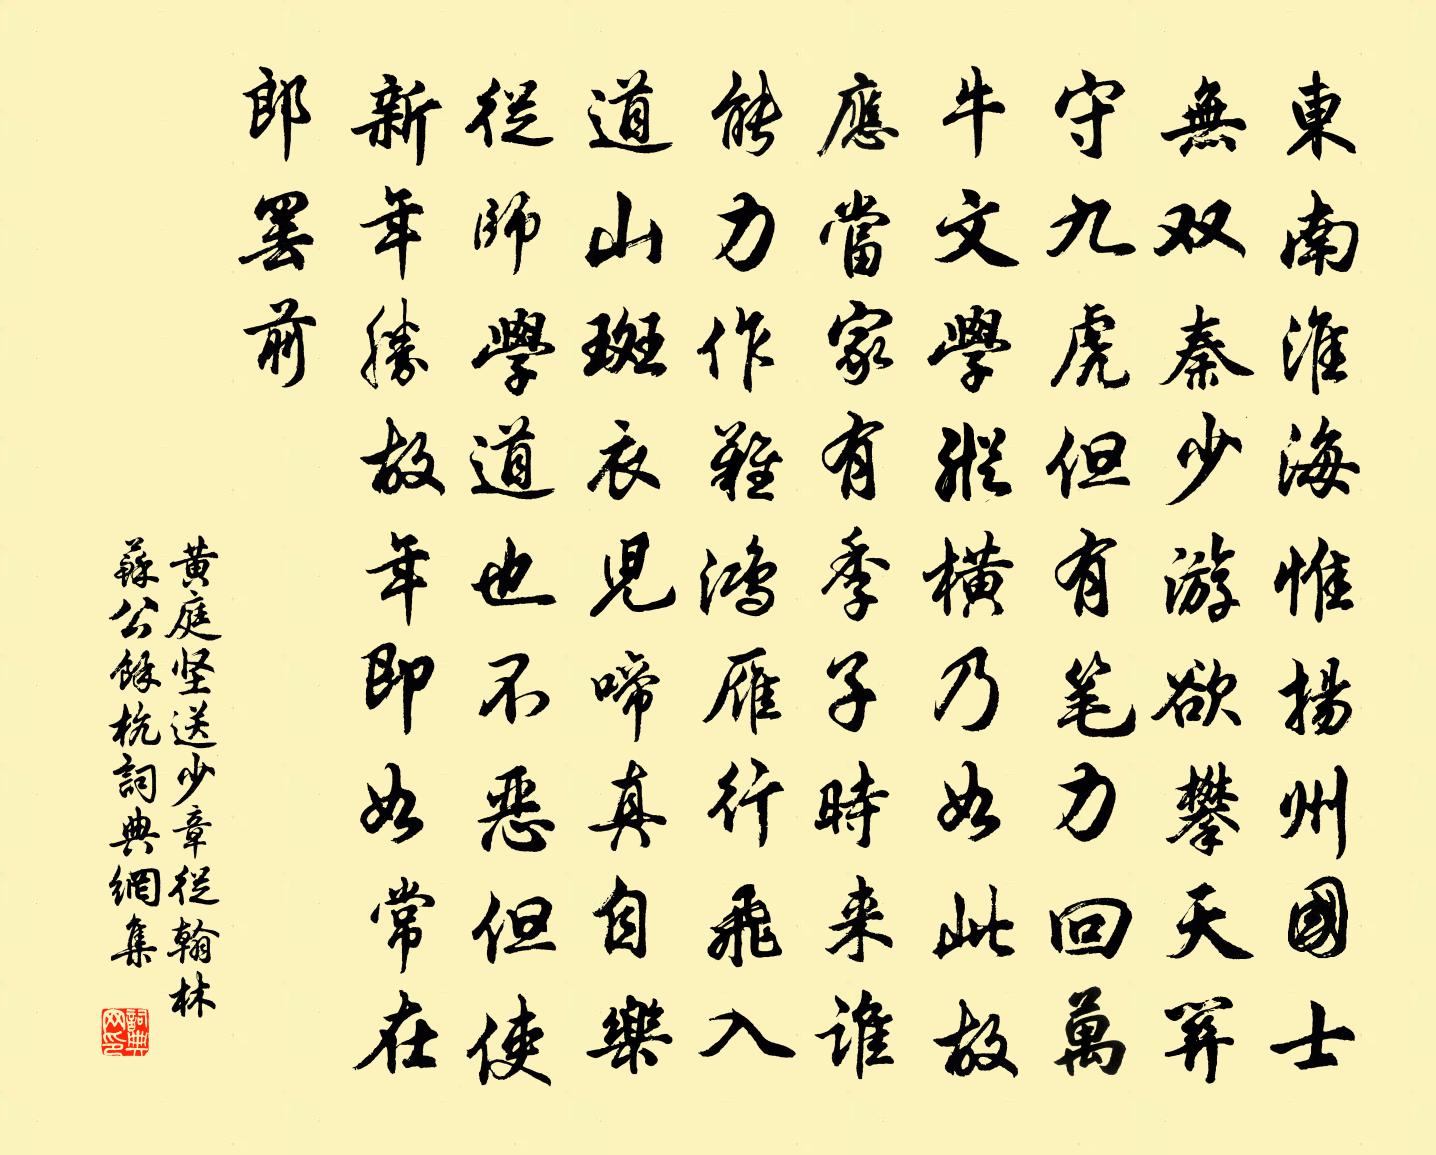 東南淮海惟揚州國士
無双秦少游欲攀天關
守九虎但有笔力回萬
牛文學縱橫乃如此故
應當家有季子時来谁
能力作難鸿雁行飛入
道山斑衣児啼真自樂
從師學道也不惡但使
新年勝故年即如常在
郎罢前
黄庭坚送少章從翰林
蘇公餘杭詞典網集
詞典网印